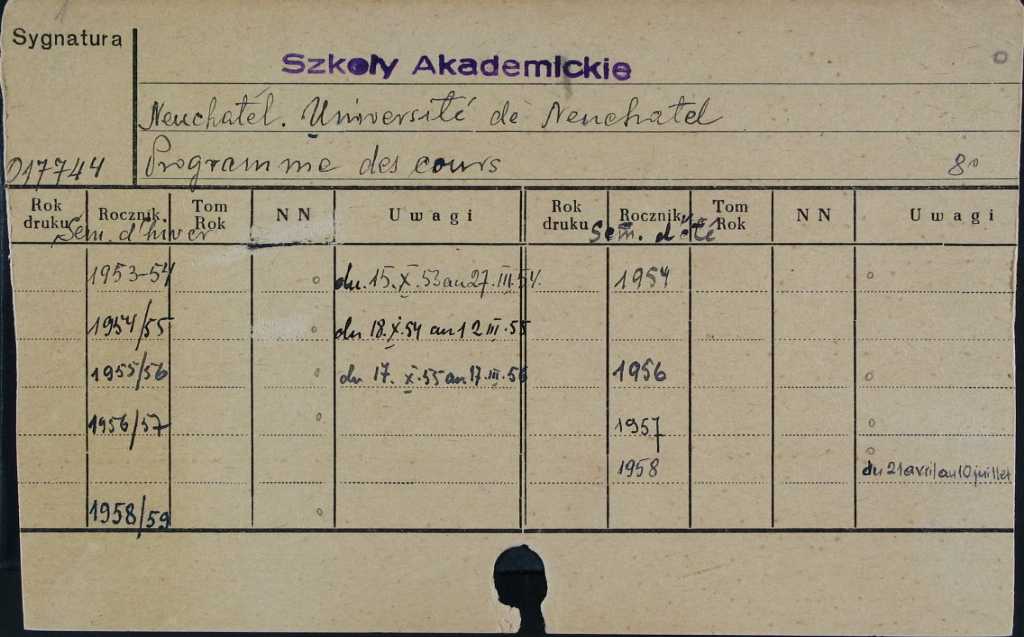 Sygnatura
Szkoły Akademickie
Neuchatél. Université de Neuchatel
017744 Programme des cours 8°
Rok druku Rocznik. Tom Rok NN Uwagi Rok druku Rocznik Tom Rok NN Uwagi
Sem. d'hiver Sem. d'été
1953-54 du 15.X.53 au 27.III.54. 1954
1954/55 du 18.X.54 au 12 III.55
1955/56 du 17. X.55 au 17.III.56 1956
1956/57 1957
1958 du 21 avril au 10 juillet
1958/59